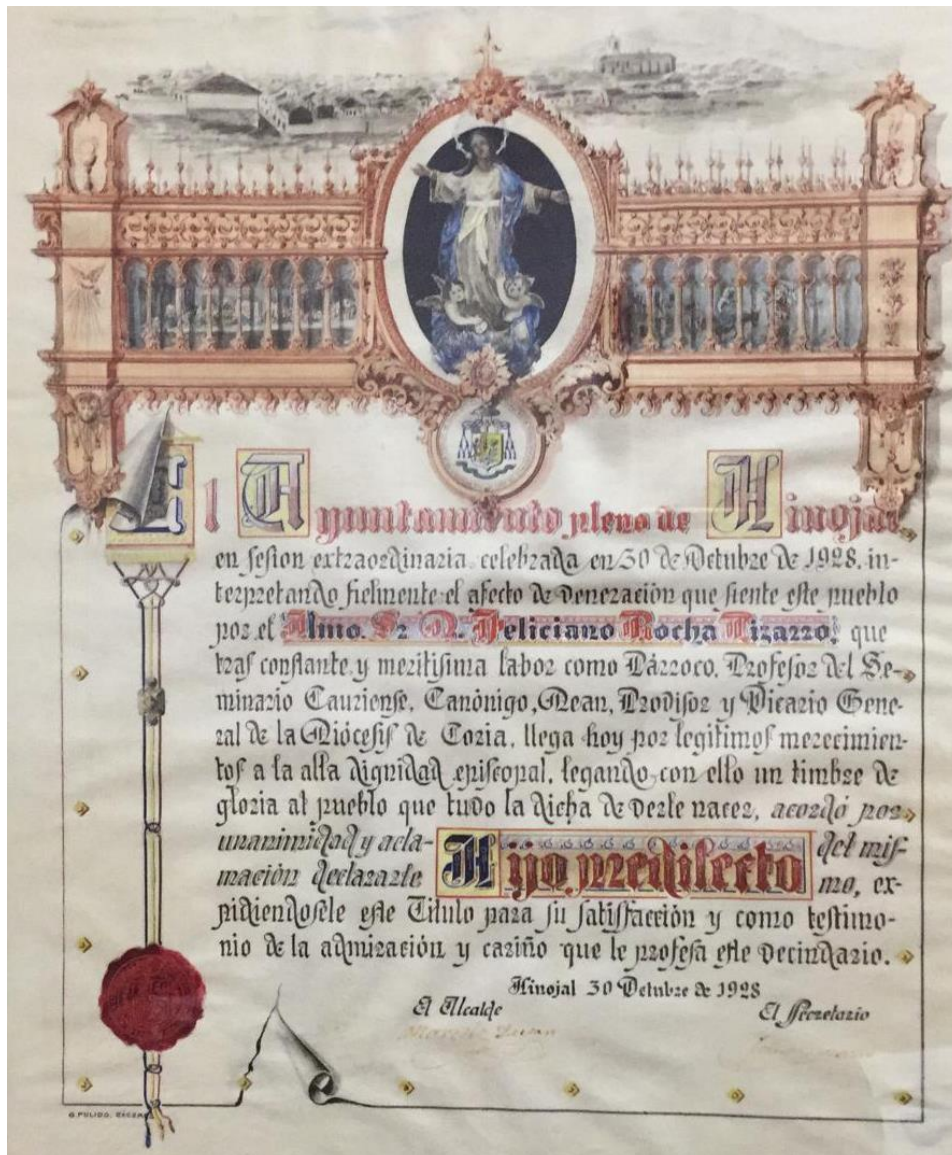 El Ayuntamiento pleno de Hinojal
en sesion extraordinaria celebrada en 30 de Octubre de 1928, in-
terpretando fielmente el afecto de veneración que siente este pueblo
por el Ilmo. Sr. D. Feliciano Rocha Pizarro, que
tras constante y meritisima labor como Párroco, Profesor del Se-
minario Cauriense, Canónigo, Dean, Provisor y Vicario Gene-
ral de la Diócesis de Coria, llega hoy por legitimos merecimien-
tos a la alta dignidad episcopal, legando con ello un timbre de
gloria al pueblo que tuvo la dicha de verle nacer, acordó por
unanimidad y acla-
mación declararle Hijo predilecto del mis-
mo, ex-
pidiendosele este Titulo para su satisfacción y como testimo-
nio de la admiración y cariño que le profesa este vecindario.
Hinojal 30 Octubre de 1928
El Alcalde El Secretario
G. PULIDO.